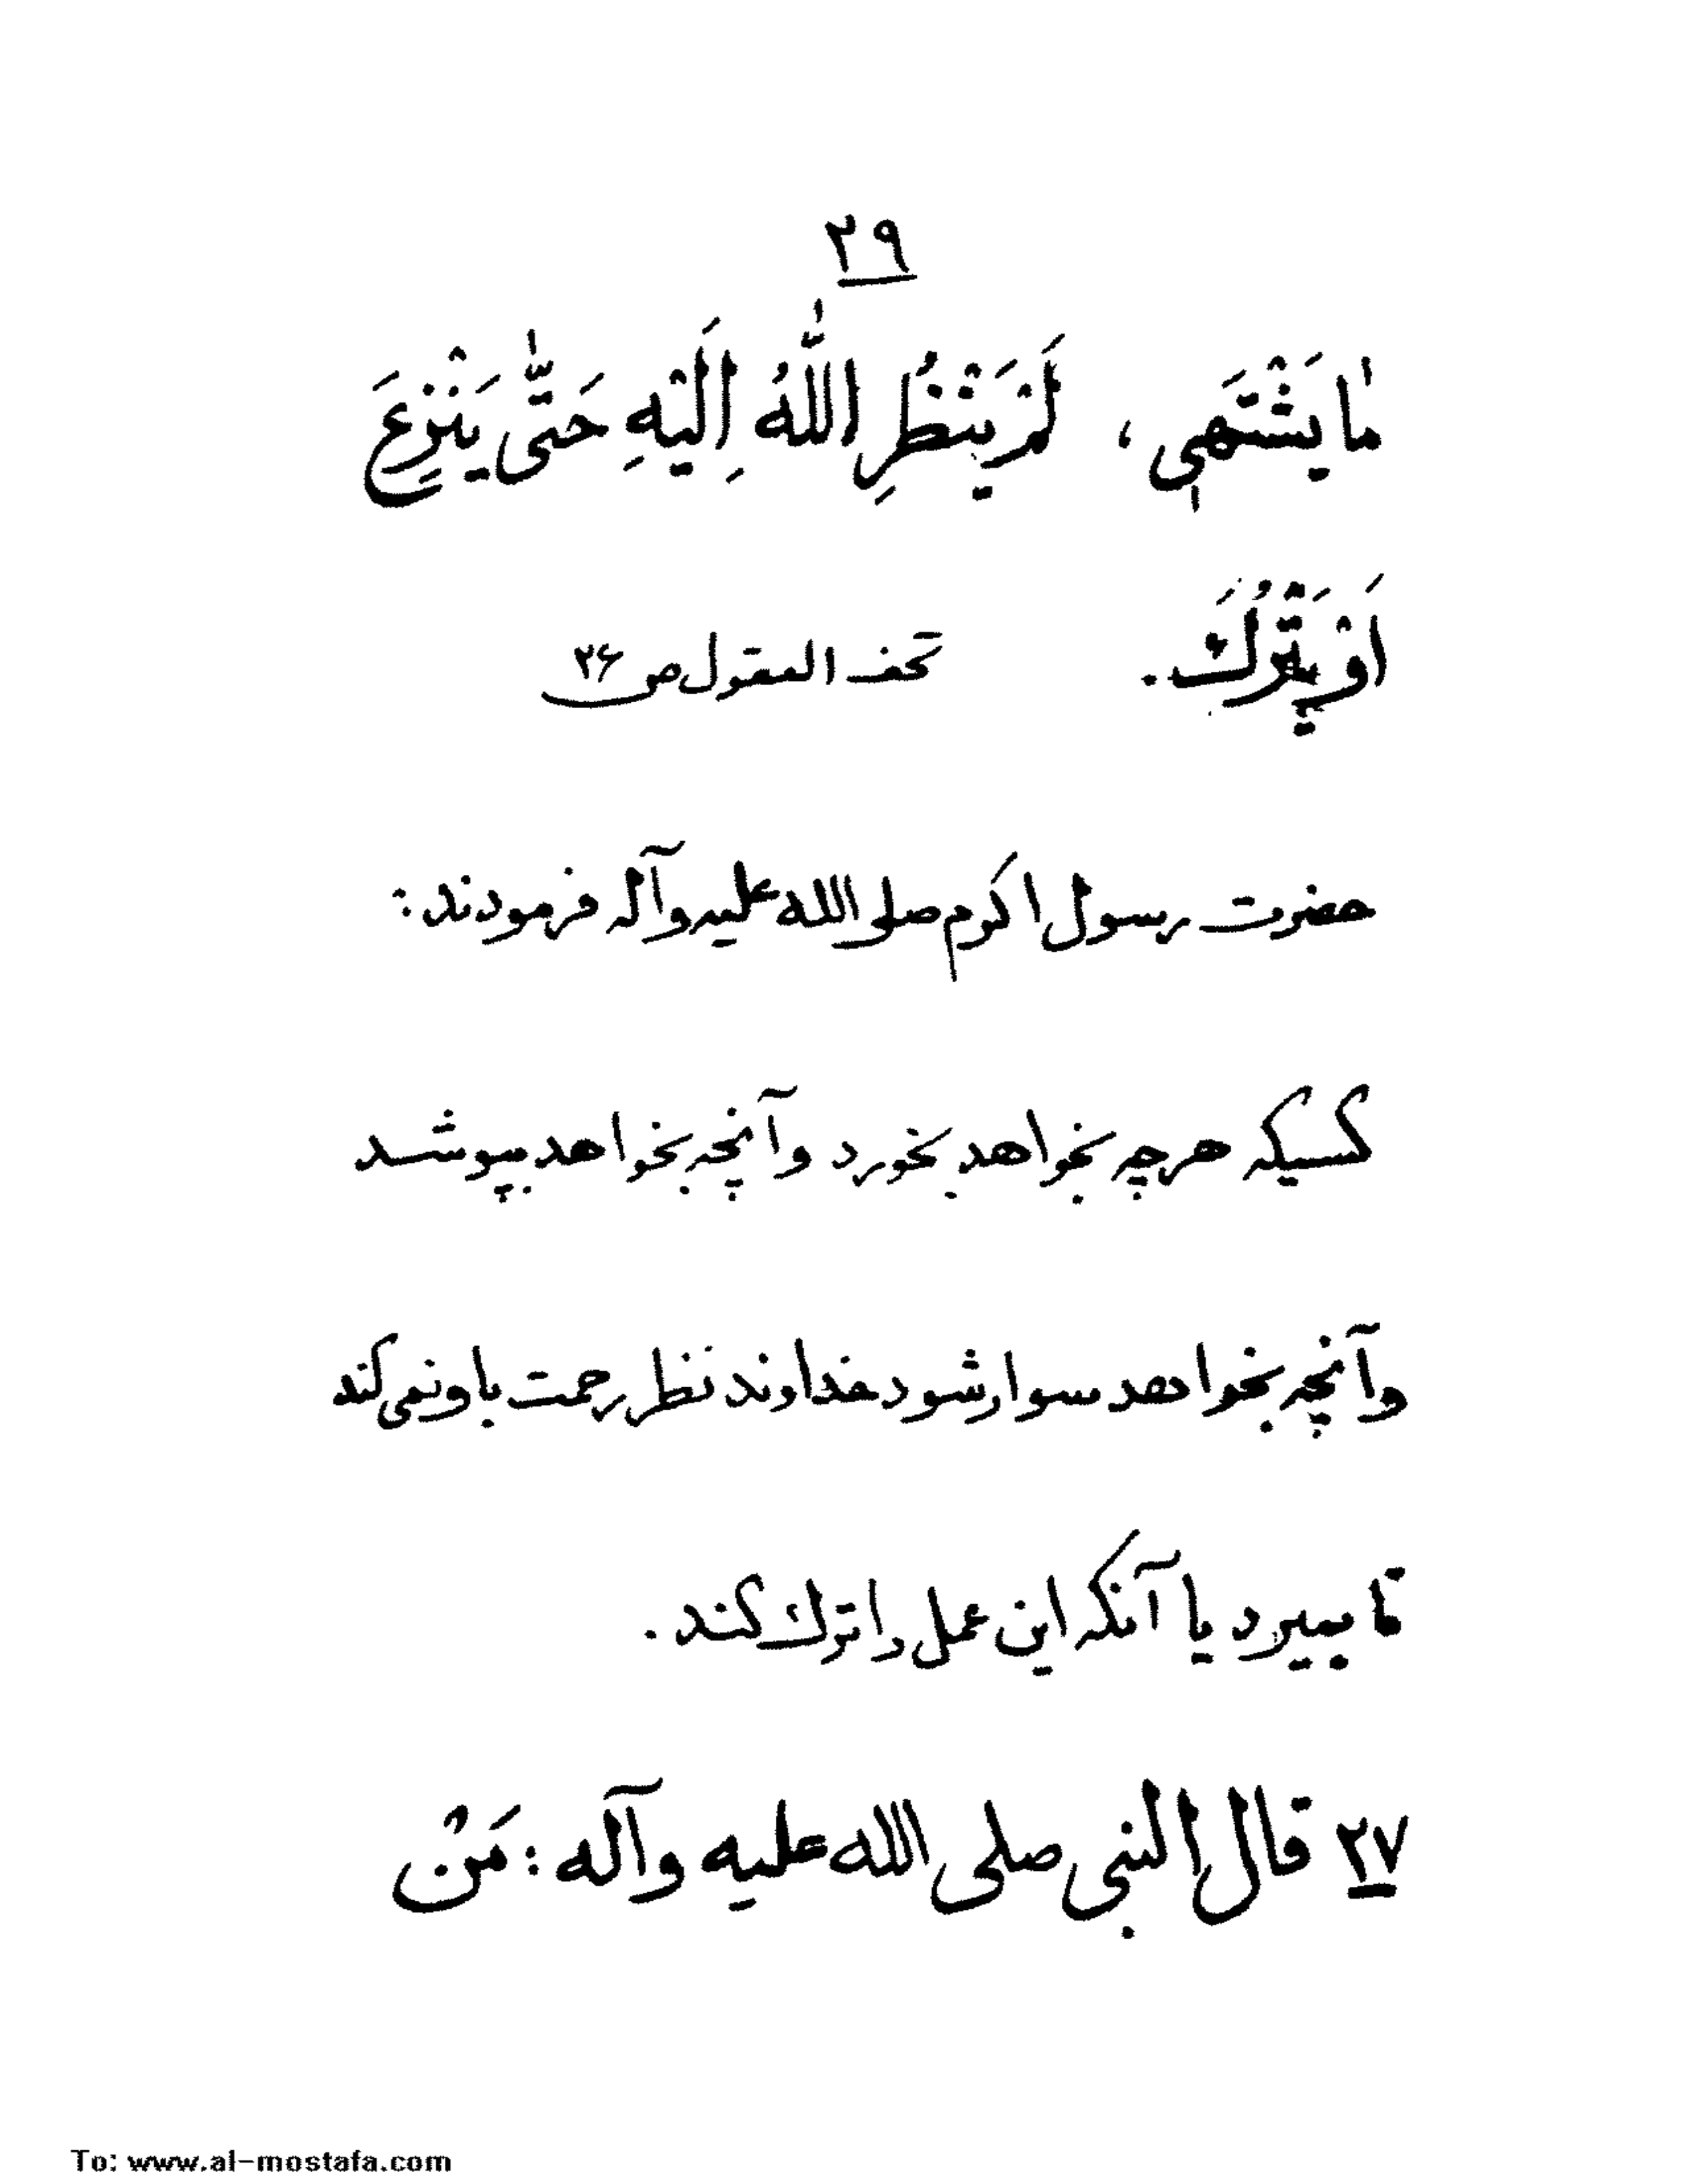 ۲۹
مٰا يَشْتَهٖى ، لَمْ يَنْظُرِ اللّٰهُ اِلَيْهِ حَتّٰى يَنْزِعَ
اَوْ يَتْرُكَ . تحف العقول ص ۳۶
حضرت رسول اکرم صلی الله علیه وآله فرمودند :
کسیکه هرچه بخواهد بخورد وآنچه بخواهد بپوشد
وآنچه بخواهد سوار شود خداوند نظر رحمت باونمی کند
تا بمیرد یا آنکه این عمل را ترك کند .
۲۷ قال النبی صلی الله علیه وآله : مَنْ
To: www.al-mostafa.com